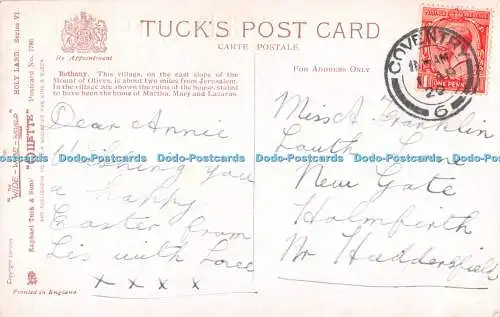 TUCK'S POST CARD
CARTE POSTALE
By Appointment
Bethany. This village, on the east slope of the
Mount of Olives, is about two miles from Jerusalem.
In the village are shown the ruins of the house, stated
to have been the home of Martha, Mary and Lazarus.
FOR ADDRESS ONLY
Dear Annie
Wishing you
a happy
Easter from
Lis with Love
x x x x
Miss A Franklin
South Lane
New Gate
Holmfirth
Nr Huddersfield
COVENTRY
6
ONE PENNY
HOLY LAND. Series VI
"WIDE-WIDE-WORLD"
Postcard No. 7780
Raphael Tuck & Sons' "OILETTE"
Copyright
Printed in England
Dodo-Postcards Dodo-Postcards Dodo-Postcards Dodo-Postcards